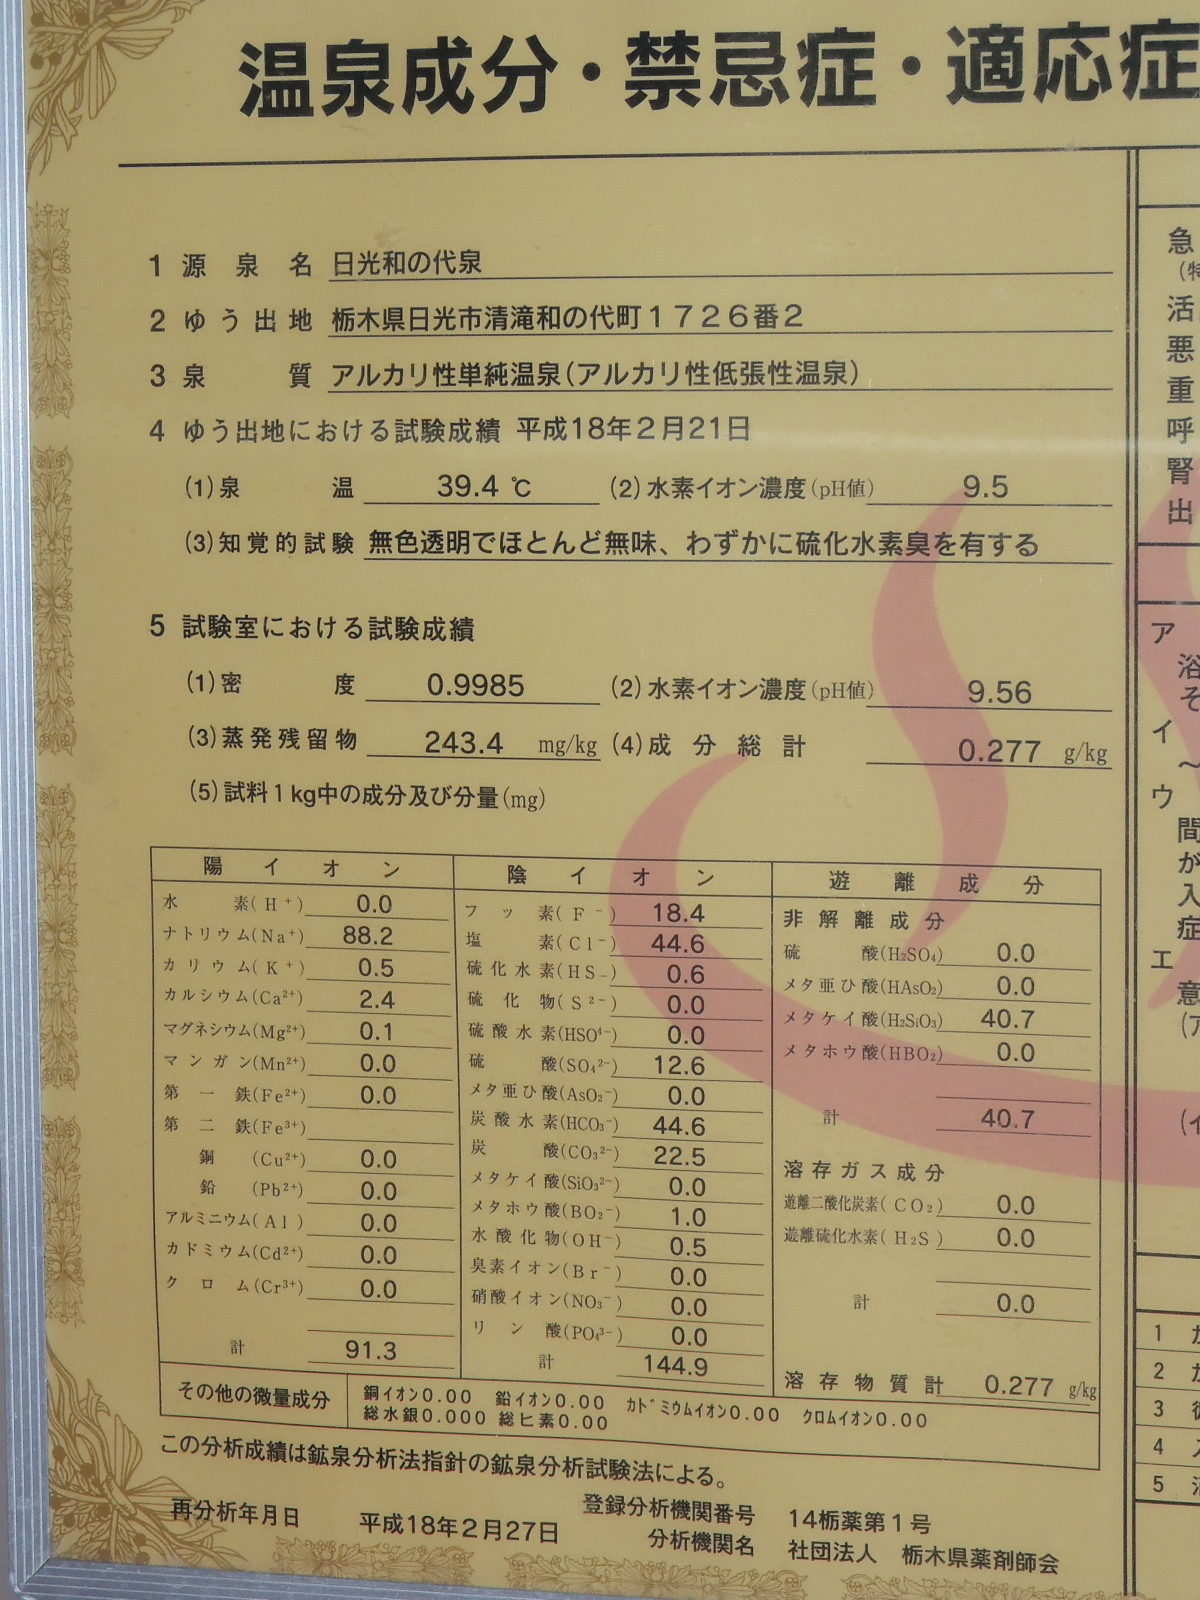 温泉成分・禁忌症・適応症
1 源泉名 日光和の代泉
2 ゆう出地 栃木県日光市清滝和の代町1726番2
3 泉質 アルカリ性単純温泉(アルカリ性低張性温泉)
4 ゆう出地における試験成績 平成18年2月21日
(1)泉温 39.4 ℃ (2)水素イオン濃度(pH値) 9.5
(3)知覚的試験 無色透明でほとんど無味、わずかに硫化水素臭を有する
5 試験室における試験成績
(1)密度 0.9985 (2)水素イオン濃度(pH値) 9.56
(3)蒸発残留物 243.4 mg/kg (4)成分総計 0.277 g/kg
(5)試料1kg中の成分及び分量(mg)
陽イオン
水素(H⁺) 0.0
ナトリウム(Na⁺) 88.2
カリウム(K⁺) 0.5
カルシウム(Ca²⁺) 2.4
マグネシウム(Mg²⁺) 0.1
マンガン(Mn²⁺) 0.0
第一鉄(Fe²⁺) 0.0
第二鉄(Fe³⁺)
銅(Cu²⁺) 0.0
鉛(Pb²⁺) 0.0
アルミニウム(Al) 0.0
カドミウム(Cd²⁺) 0.0
クロム(Cr³⁺) 0.0
計 91.3
陰イオン
フッ素(F⁻) 18.4
塩素(Cl⁻) 44.6
硫化水素(HS₋) 0.6
硫化物(S²⁻) 0.0
硫酸水素(HSO⁴⁻) 0.0
硫酸(SO₄²⁻) 12.6
メタ亜ひ酸(AsO₂⁻) 0.0
炭酸水素(HCO₃⁻) 44.6
炭酸(CO₃²⁻) 22.5
メタケイ酸(SiO₃²⁻) 0.0
メタホウ酸(BO₂⁻) 1.0
水酸化物(OH⁻) 0.5
臭素イオン(Br⁻) 0.0
硝酸イオン(NO₃⁻) 0.0
リン酸(PO₄³⁻) 0.0
計 144.9
遊離成分
非解離成分
硫酸(H₂SO₄) 0.0
メタ亜ひ酸(HAsO₂) 0.0
メタケイ酸(H₂SiO₃) 40.7
メタホウ酸(HBO₂) 0.0
計 40.7
溶存ガス成分
遊離二酸化炭素(CO₂) 0.0
遊離硫化水素(H₂S) 0.0
計 0.0
溶存物質計 0.277 g/kg
その他の微量成分
銅イオン0.00 鉛イオン0.00 カドミウムイオン0.00 クロムイオン0.00
総水銀0.000 総ヒ素0.00
この分析成績は鉱泉分析法指針の鉱泉分析試験法による。
再分析年月日 平成18年2月27日
登録分析機関番号 14栃薬第1号
分析機関名 社団法人 栃木県薬剤師会
急
(特
活
悪
重
呼
腎
出
ア
浴
そ
イ
～
ウ
間
が
入
症
エ
意
(ア
(イ
1
2
3
4
5